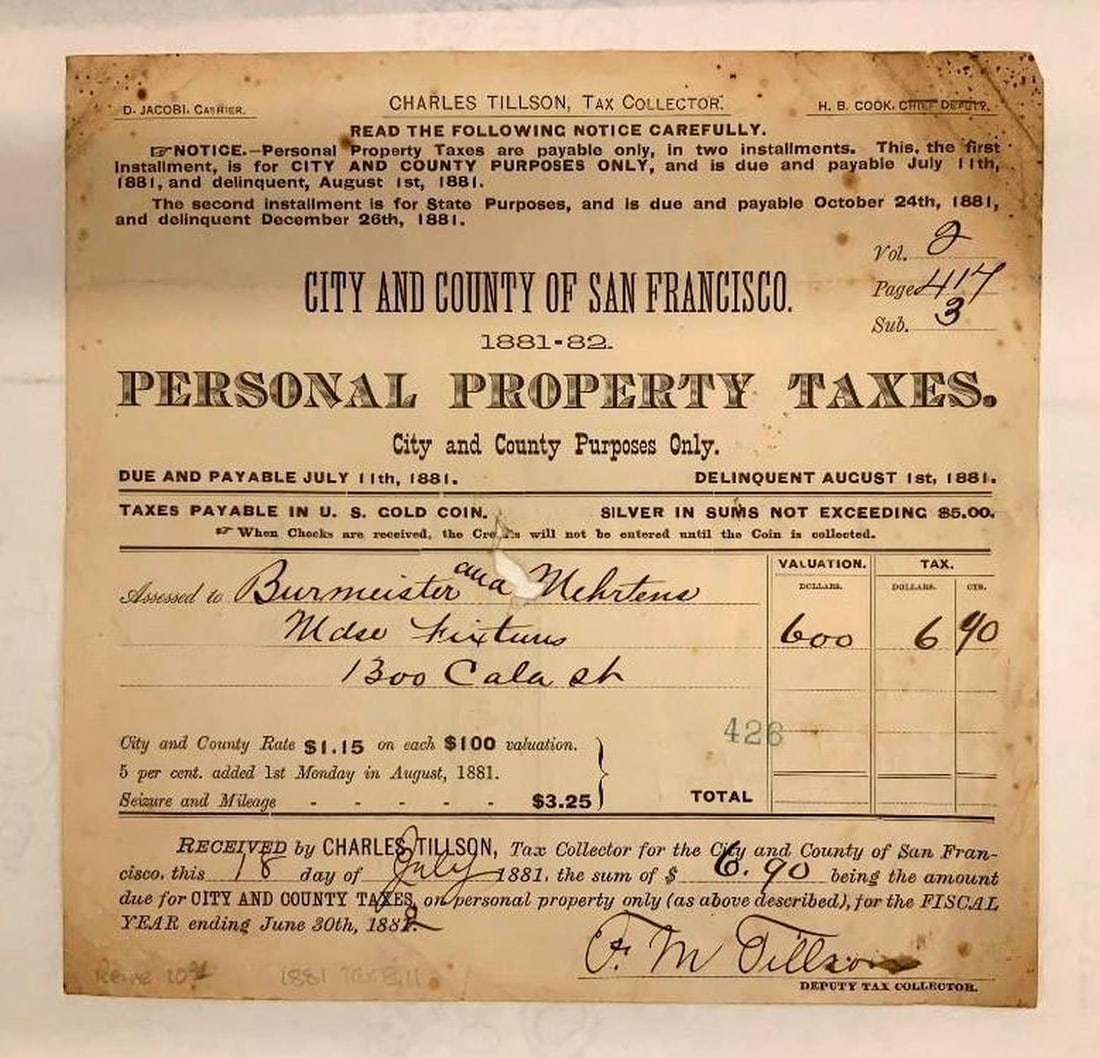 D. JACOBI, CASHIER.
CHARLES TILLSON, TAX COLLECTOR.
H. B. COOK, CHIEF DEPUTY.
READ THE FOLLOWING NOTICE CAREFULLY.
☞NOTICE.—Personal Property Taxes are payable only, in two installments. This, the first
Installment, is for CITY AND COUNTY PURPOSES ONLY, and is due and payable July 11th,
1881, and delinquent, August 1st, 1881.
The second installment is for State Purposes, and is due and payable October 24th, 1881,
and delinquent December 26th, 1881.
Vol. 2
Page 417
Sub. 3
CITY AND COUNTY OF SAN FRANCISCO.
1881-82.
PERSONAL PROPERTY TAXES.
City and County Purposes Only.
DUE AND PAYABLE JULY 11th, 1881. DELINQUENT AUGUST 1st, 1881.
TAXES PAYABLE IN U. S. GOLD COIN. SILVER IN SUMS NOT EXCEEDING $5.00.
☞ When Checks are received, the will not be entered until the Coin is collected.
VALUATION. TAX.
DOLLARS. DOLLARS. CTS.
Assessed to Burmeister and Mehrtens
Mdse Fixtures 600 6 90
1300 Cala st
426
City and County Rate $1.15 on each $100 valuation.
5 per cent. added 1st Monday in August, 1881.
Seizure and Mileage - - - - - $3.25
TOTAL
RECEIVED by CHARLES TILLSON, Tax Collector for the City and County of San Fran-
cisco, this 18 day of July 1881, the sum of $ 6.90 being the amount
due for CITY AND COUNTY TAXES, on personal property only (as above described), for the FISCAL
YEAR ending June 30th, 1882
F. M Tillson
DEPUTY TAX COLLECTOR.
1881 Tax Bill